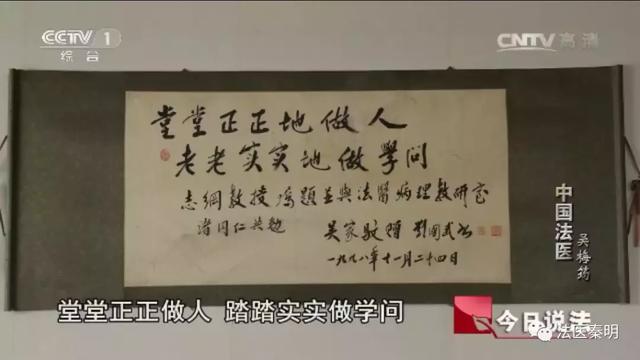 CCTV 1
综合
CNTV高清
堂堂正正地做人
老老实实地做學问
志綱教授嘱題並與法醫病理教研室
诸同仁共勉
吴家駇贈 劉国武书
一九九八年十一月二十四日
中国法医
吴梅筠
堂堂正正做人 踏踏实实做学问
今日说法
法医秦明